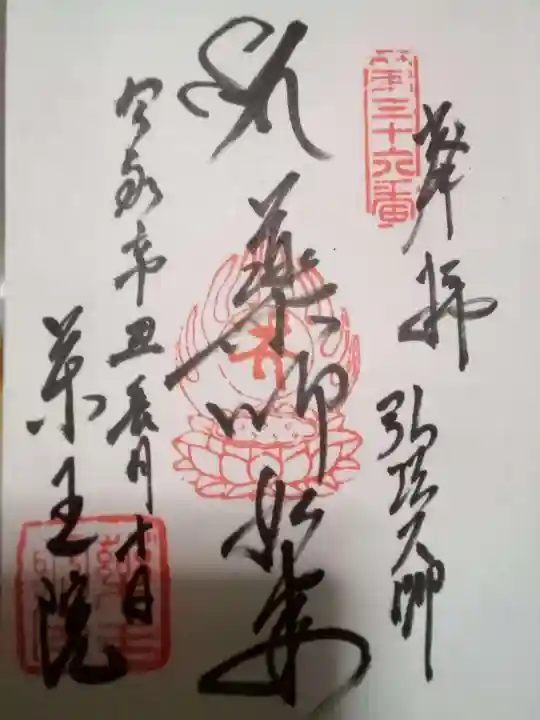 第三十六番
奉拝
弘法大師
薬師如来
令和辛丑長月十日
薬王院